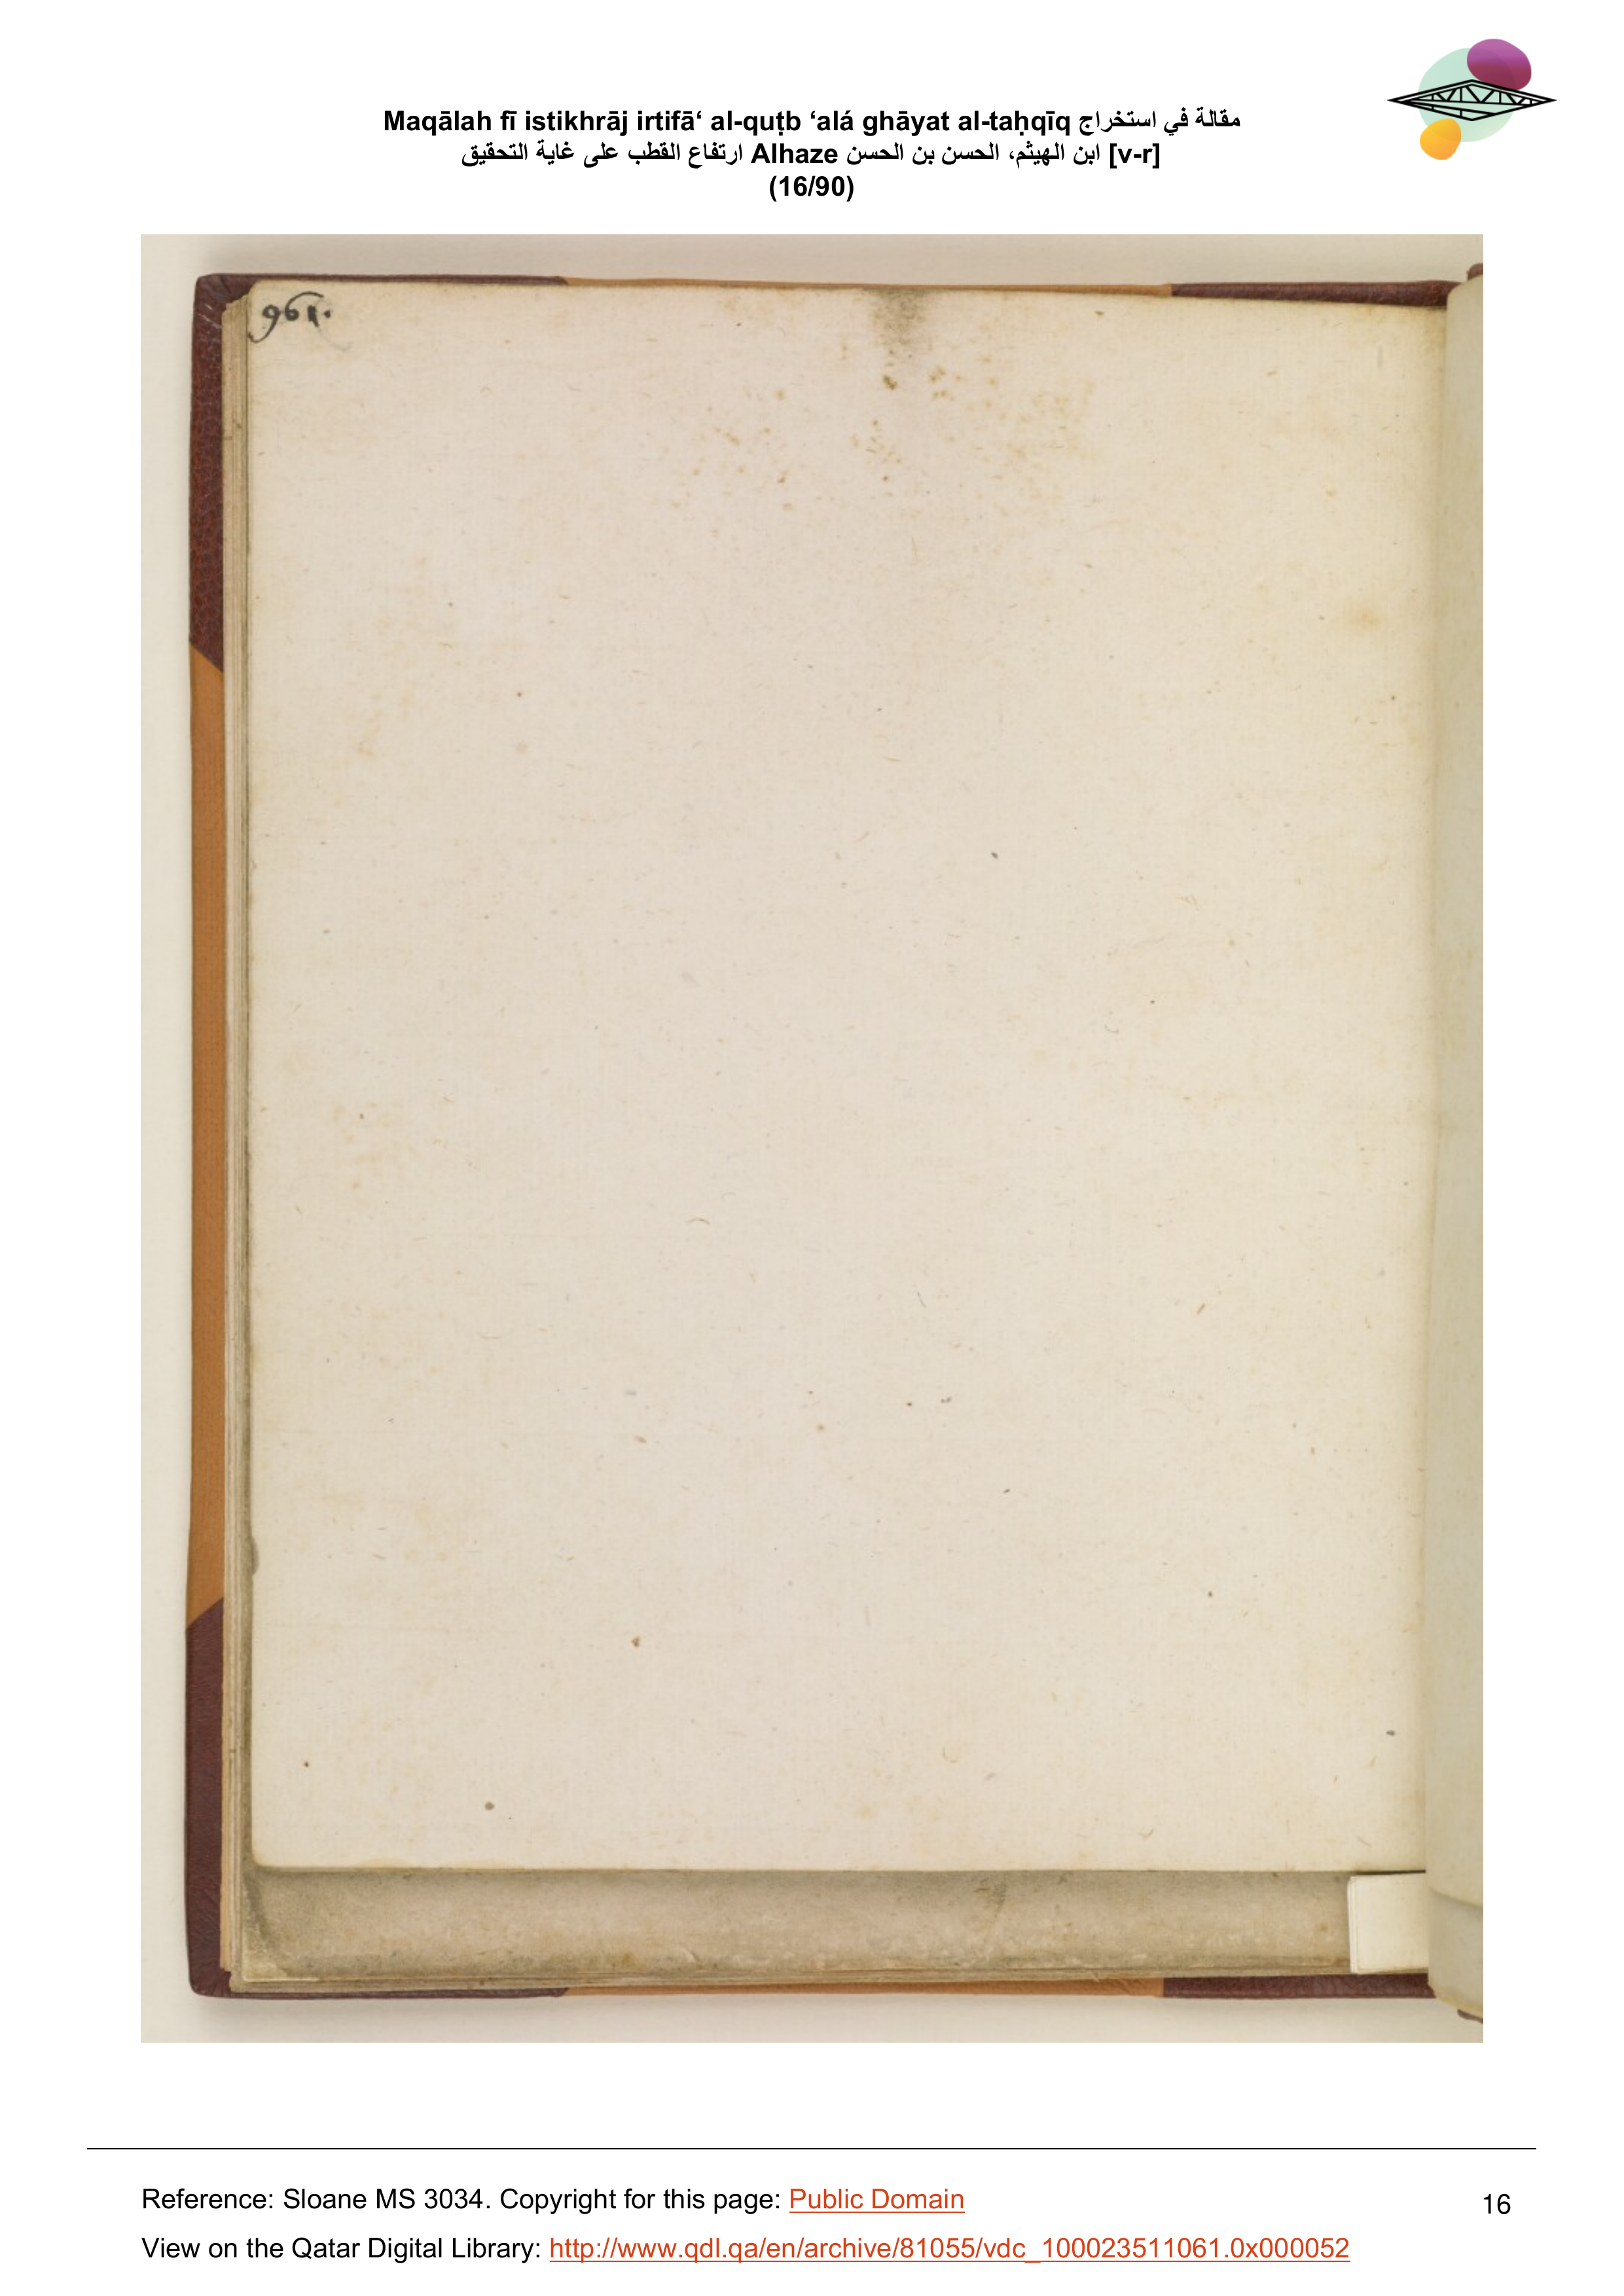 Maqālah fī istikhrāj irtifā‘ al-quṭb ‘alá ghāyat al-taḥqīq مقالة في استخراج
ارتفاع القطب على غاية التحقيق Alhaze ابن الهيثم، الحسن بن الحسن [v-r]
(16/90)
961.
Reference: Sloane MS 3034. Copyright for this page: Public Domain
16
View on the Qatar Digital Library: http://www.qdl.qa/en/archive/81055/vdc_100023511061.0x000052